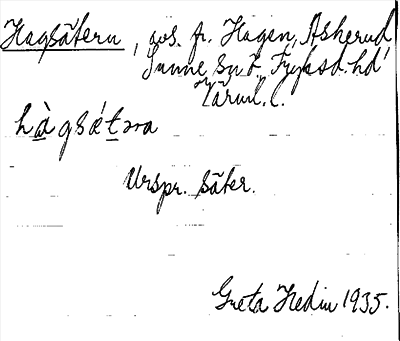 Hagsätern, avs. fr. Hagen, Askerud
Sunne sn o. Fryksd. hd
Värml. l.
hàgsǽtəra
Urspr. säter.
Greta Hedin 1935.